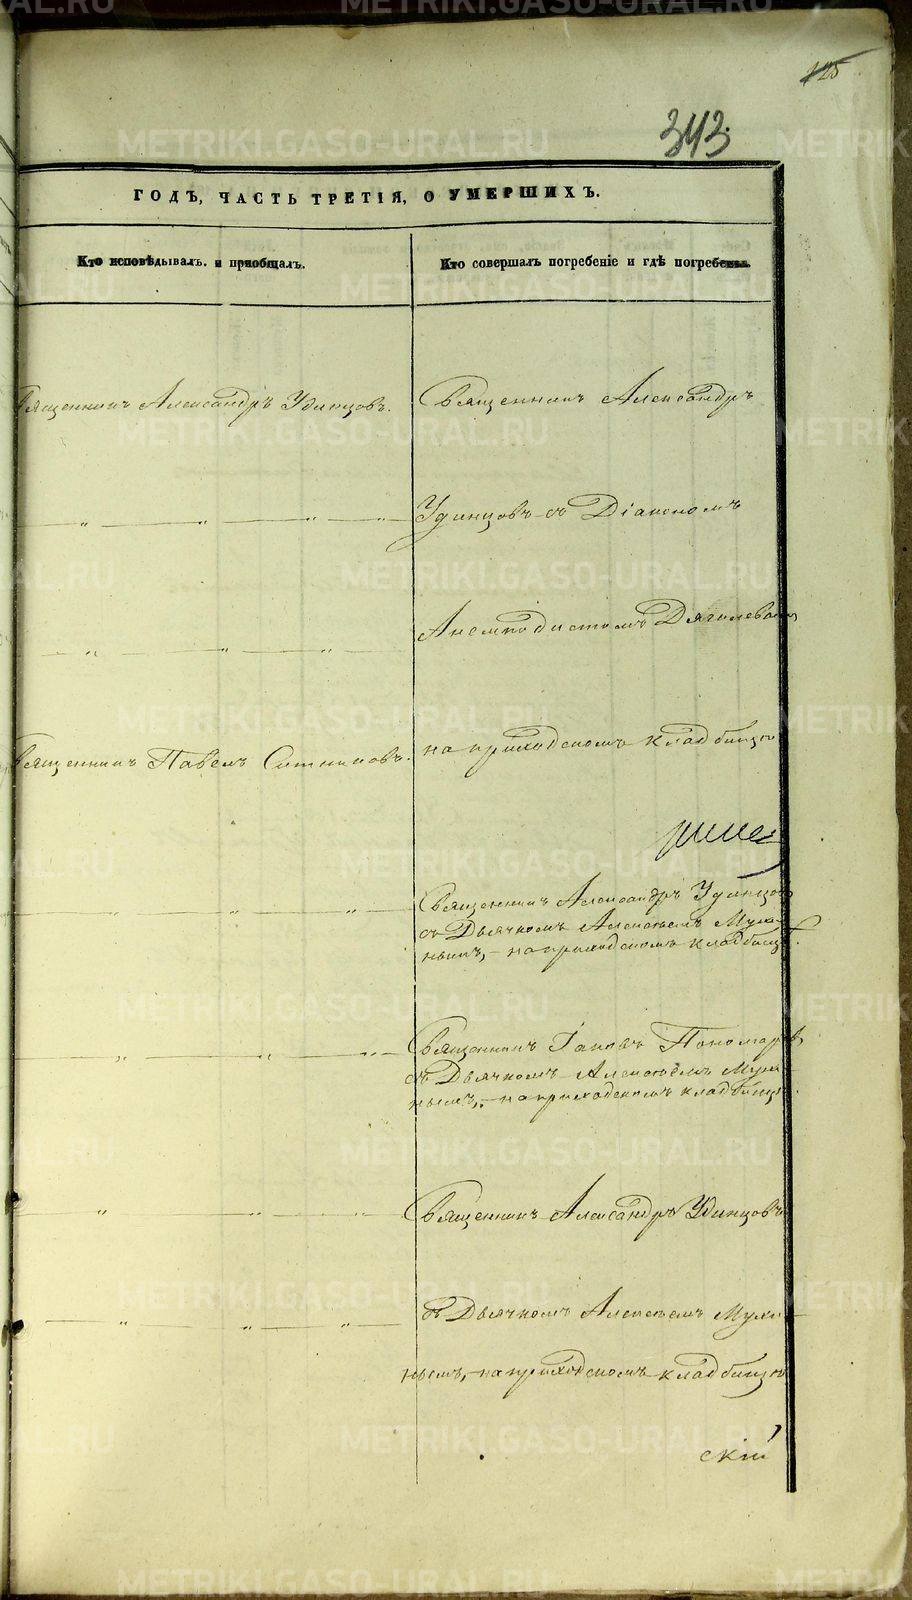 125
343
ГОДЪ, ЧАСТЬ ТРЕТІЯ, О УМЕРШИХЪ.
Кто исповѣдывалъ и приобщалъ.
Кто совершалъ погребеніе и гдѣ погребены.
Священникъ Александръ Удинцовъ.
Священникъ Александръ
" " " "
Удинцовъ съ Діакономъ
" " "
Анемподистомъ Дягилевымъ
Священникъ Павелъ Ситниковъ.
на приходскомъ кладбищѣ
" " "
Священникъ Александръ Удинцовъ
съ Дьячкомъ Алексѣемъ Мухи-
нымъ, на приходскомъ кладбищѣ.
" " "
Священникъ Іаковъ Пономаревъ
съ Дьячкомъ Алексѣемъ Мухи-
нымъ, на приходскомъ кладбищѣ.
" " "
Священникъ Александръ Удинцовъ
" " "
съ Дьячкомъ Алексѣемъ Мухи-
нымъ, на приходскомъ кладбищѣ
скій
METRIKI.GASO-URAL.RU